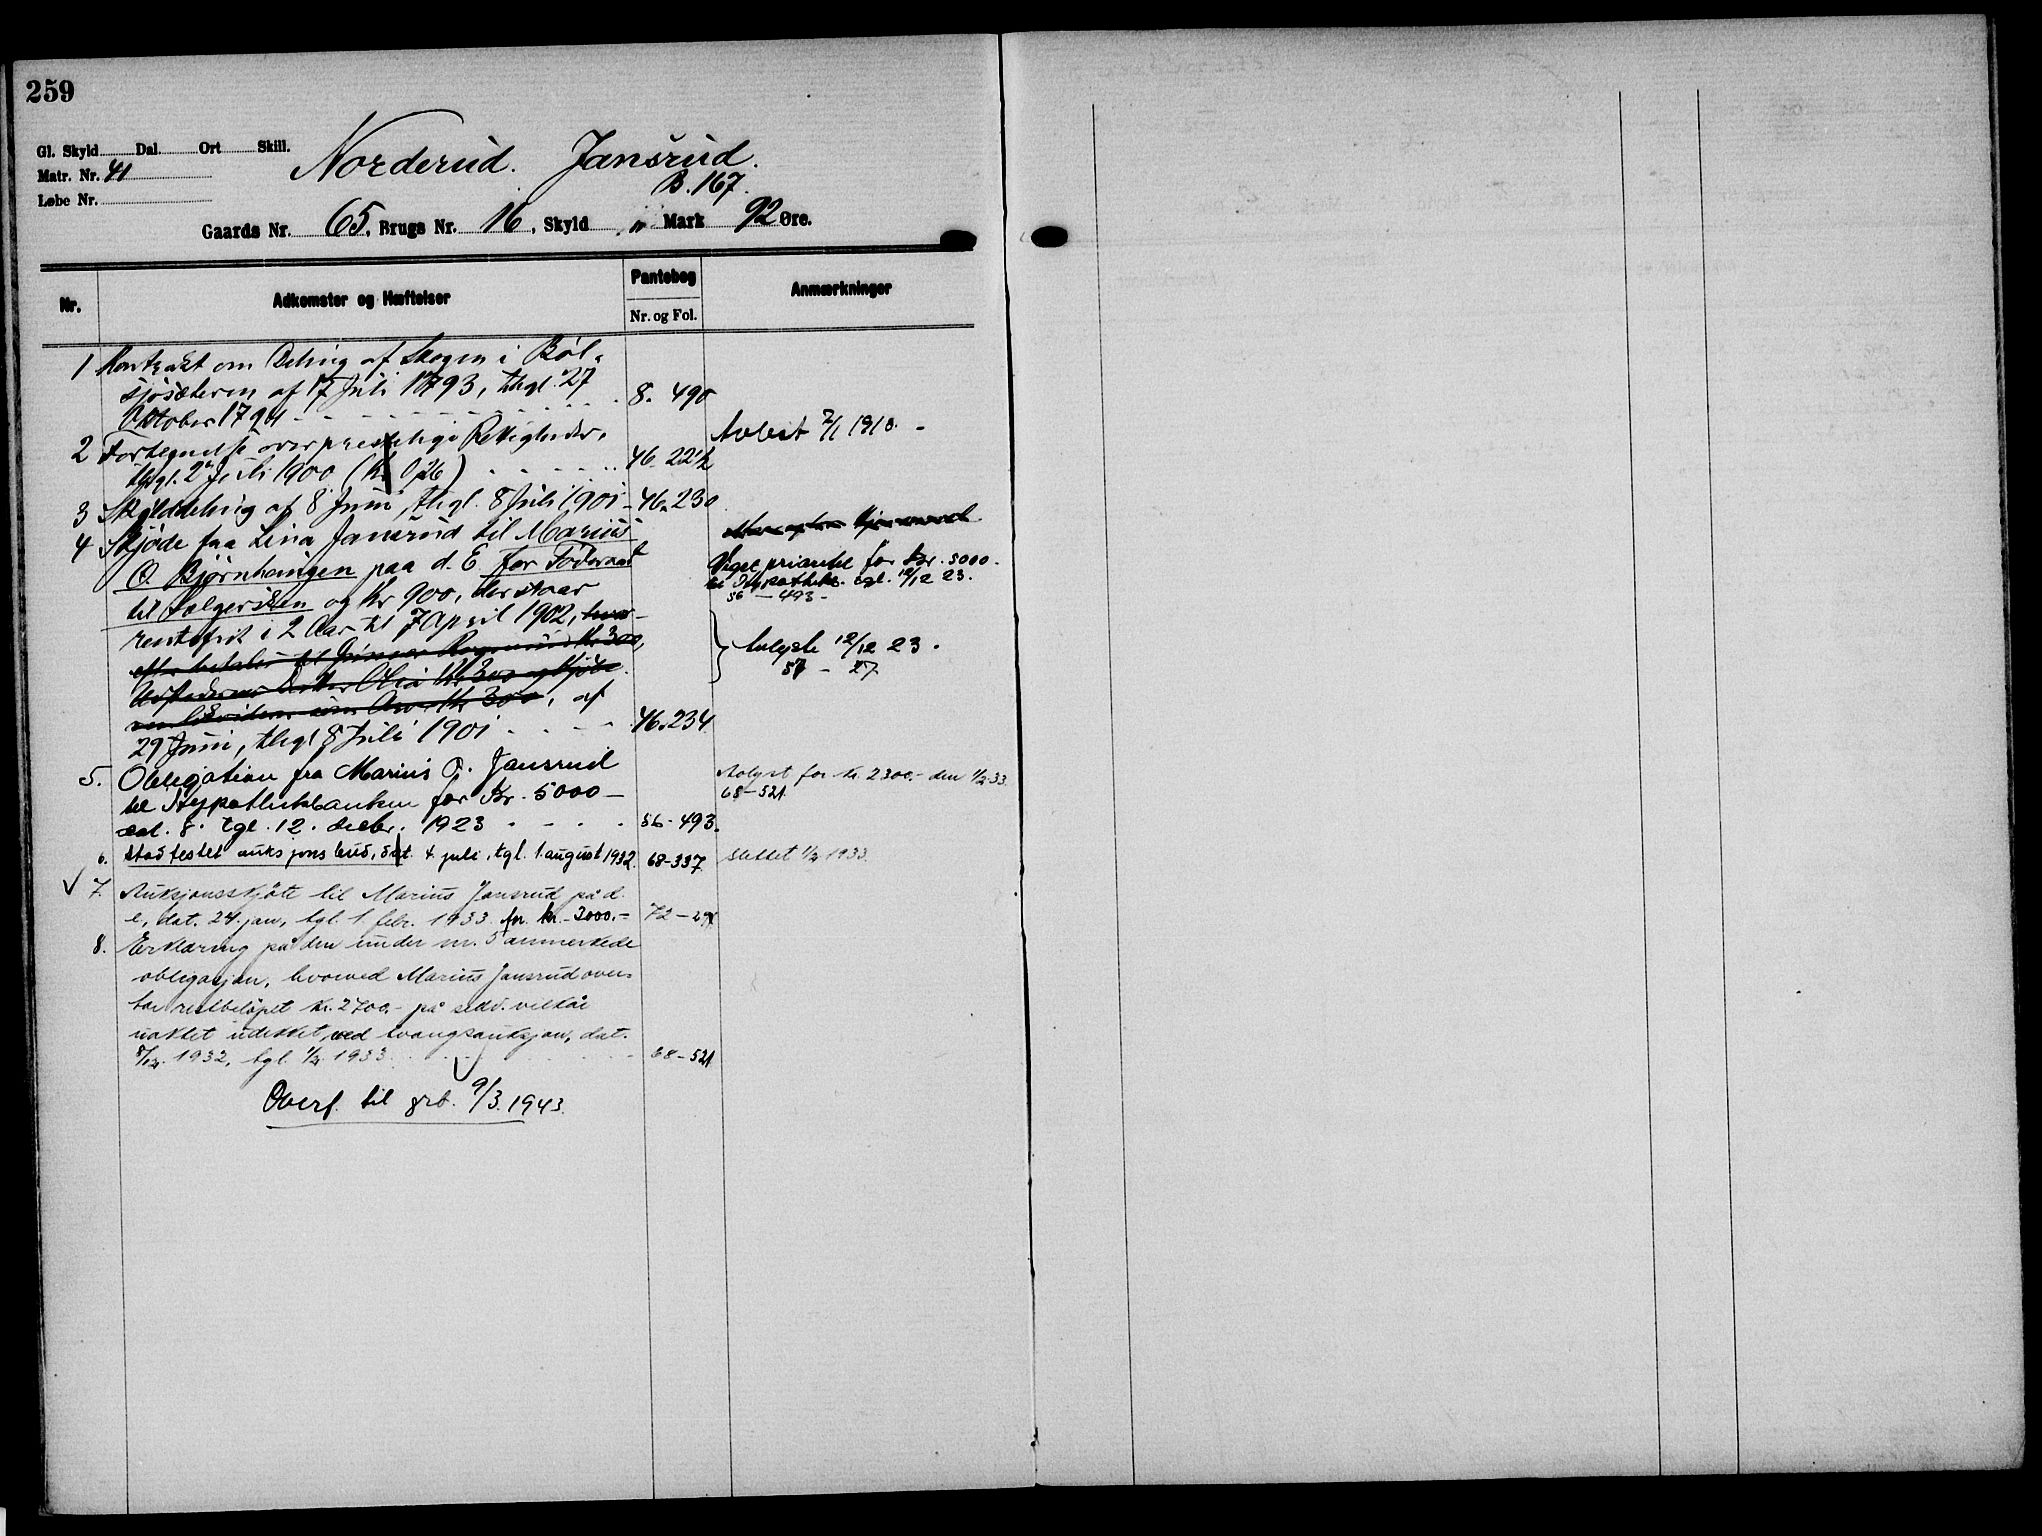 259
Gl. Skyld Dal. Ort Skill.
Matr. Nr. 41
Løbe Nr.
Norderud. Jansrud.
B. 167.
Gaards Nr. 65, Brugs Nr. 16, Skyld " Mark 92 Øre.
Nr. Adkomster og Hæftelser Pantebog Nr. og Fol. Anmærkninger
1 Kontrakt om Deling af Skogen i Böl-
sjösæteren af 17 Juli 1793, thgl. 27
Oktober 1794 8. 490
2 Fortegnelse over præstelige Rettigheder, Avløst 2/1 1918. -
thgl. 2 Juli 1900 (Kr. 0,26) 46-221½
3 Skylddeling af 8 Juni, thgl. 8 Juli 1901 - 46.230
4 Skjøde fra Lina Jansrud til Marius
O. Bjørnhaugen paa d. E. for Föderaad Viget prioritet for kr. 5000.-
til Sælgersken og Kr 900, der staar til Hypothekb. tgl. 12/12 23.
56 - 493 -
rentefrit i 2 Aar til 7 April 1902, hvor-
efter betales til Kr 300, Avlyste 12/12 23.
Datter Olia Kr 300 57 - 27
som Arv Kr 300, af
29 Juni, thgl 8 Juli 1901 46.234
5. Obligation fra Marius O. Jansrud Avlyst for kr. 2300.- den 1/2 33.
til Hypothekbanken for Kr. 5000 - 68-521
dat. 8. tgl. 12. decbr. 1923 56-493.
6. Stadfestet auksjonsbud, dat. 4 juli, tgl. 1 august 1932. 68-337. Slettet 1/2 1933.
7. Auksjonsskjöte til Marius Jansrud på d.
e., dat. 24 jan, tgl. 1 febr. 1933 for kr. 3000.- 72-
8. Erklæring på den under nr. 5 anmerkede
obligasjon, hvorved Marius Jansrud over-
tar restbelöpet kr. 2700.- på sedv. vilkår
uaktet udekket ved tvangsauksjon, dat.
1932, tgl. 1/2 1933 68-521
Overf. til grb. 9/3. 1943.